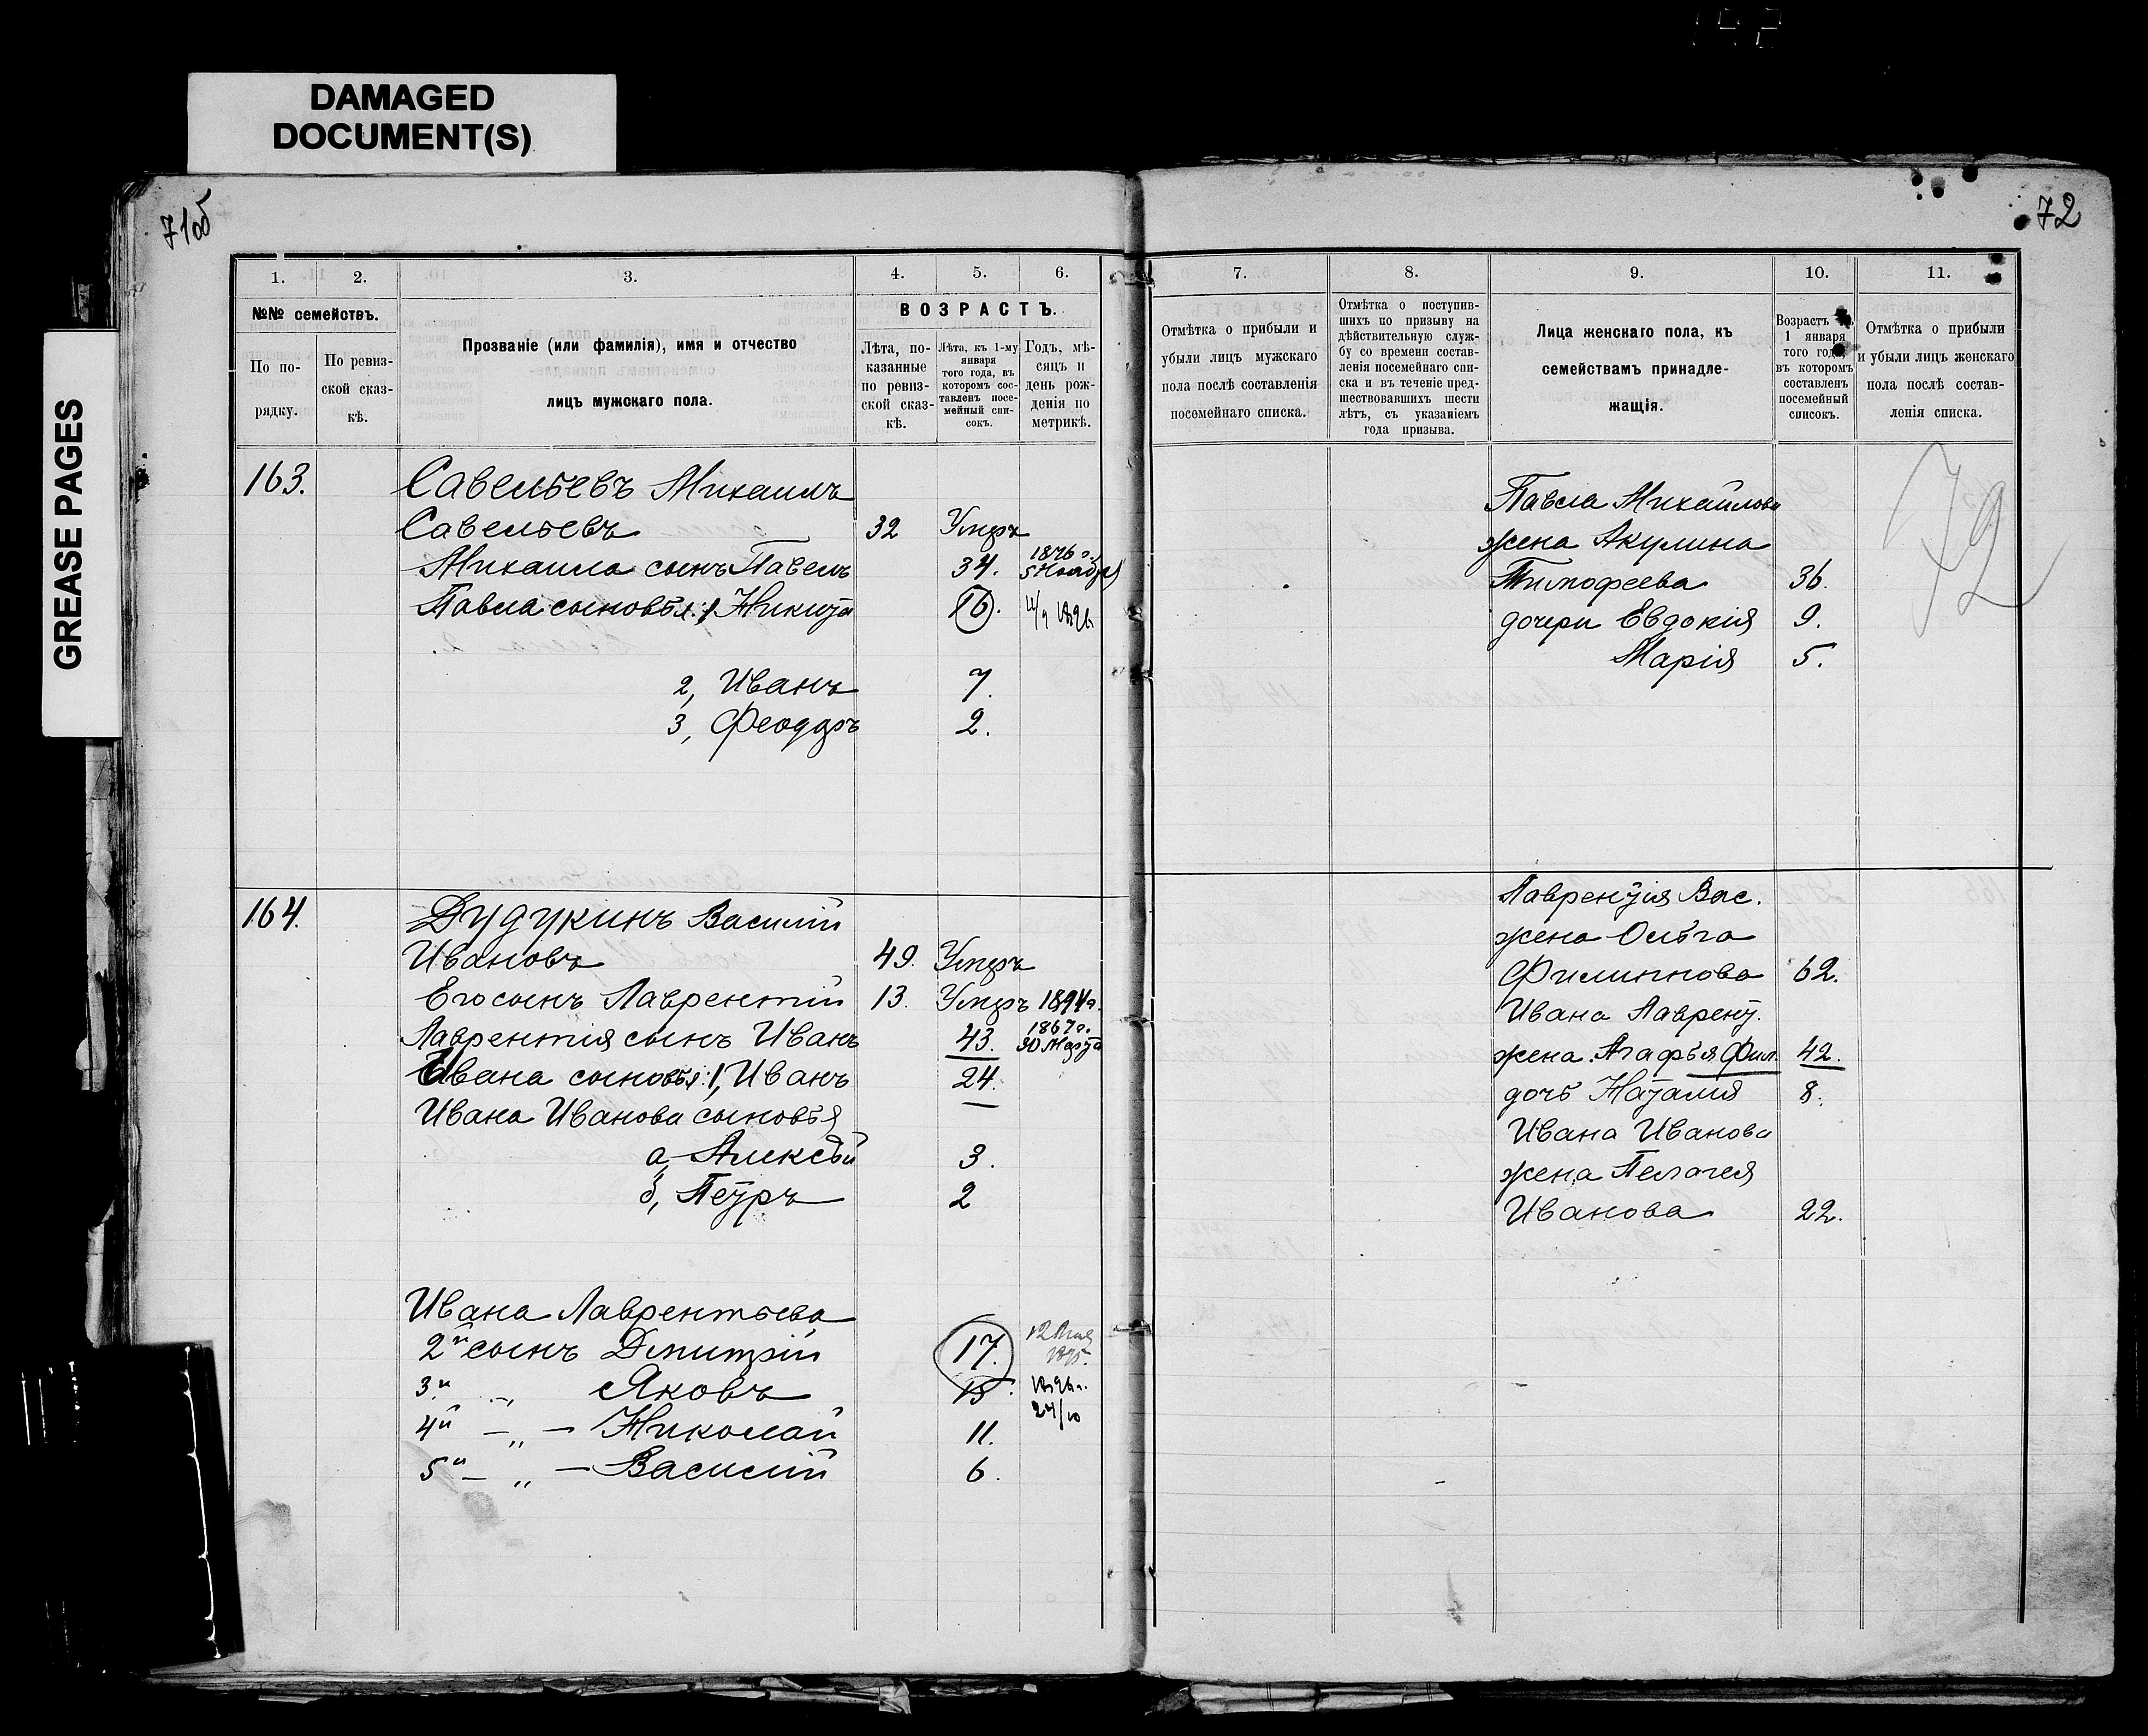 DAMAGED
DOCUMENT(S)
GREASE PAGES
71об
72
1.
2.
3.
4.
5.
6.
№№ семействъ.
По по-
рядку.
По ревиз-
ской сказ-
кѣ.
Прозваніе (или фамилія), имя и отчество
лицъ мужскаго пола.
ВОЗРАСТЪ.
Лѣта, по-
казанные
по ревиз-
ской сказ-
кѣ.
Лѣта, къ 1-му
января
того года, въ
которомъ сос-
тавленъ посе-
мейный спи-
сокъ.
Годъ, мѣ-
сяцъ и
день рож-
денія по
метрикѣ.
163.
Савельевъ Михаилъ
Савельевъ 32 Умеръ
Михаила сынъ Павелъ 34. 1876 г. 5 Ноября
Павла сыновья: 1, Никита 16.
2, Иванъ 7.
3, Феодоръ 2.
164.
Дудукинъ Василій
Ивановъ 49. Умеръ
Его сынъ Лаврентій 13. Умеръ 1894 г.
Лаврентія сынъ Иванъ 43. 1867 г. 30 Марта
Ивана сыновья: 1, Иванъ 24.
Ивана Иванова сыновья
а, Алексѣй 3.
б, Петръ 2
Ивана Лаврентьева
2й сынъ Дмитрій 17. 12 Мая 1895.
3й -„ Яковъ 15.
4й -„- Николай 11.
5й -„- Василій 6.
7.
8.
9.
10.
11.
Отмѣтка о прибыли и
убыли лицъ мужскаго
пола послѣ составленія
посемейнаго списка.
Отмѣтка о поступив-
шихъ по призыву на
дѣйствительную служ-
бу со времени состав-
ленія посемейнаго спи-
ска и въ теченіе пред-
шествовавшихъ шести
лѣтъ, съ указаніемъ
года призыва.
Лица женскаго пола, къ
семействамъ принадле-
жащія.
Возрастъ къ
1 января
того года,
въ которомъ
составленъ
посемейный
списокъ.
Отмѣтка о прибыли
и убыли лицъ женскаго
пола послѣ состав-
ленія списка.
Павла Михайлова
жена Акулина
Тимофеева 36.
дочери Евдокія 9.
Марія 5.
72
Лаврентія Вас.
жена Ольга
Филиппова 62.
Ивана Лаврент.
жена Агафья Фил. 42.
дочь Наталія 8.
Ивана Иванова
жена Пелагея
Иванова 22.